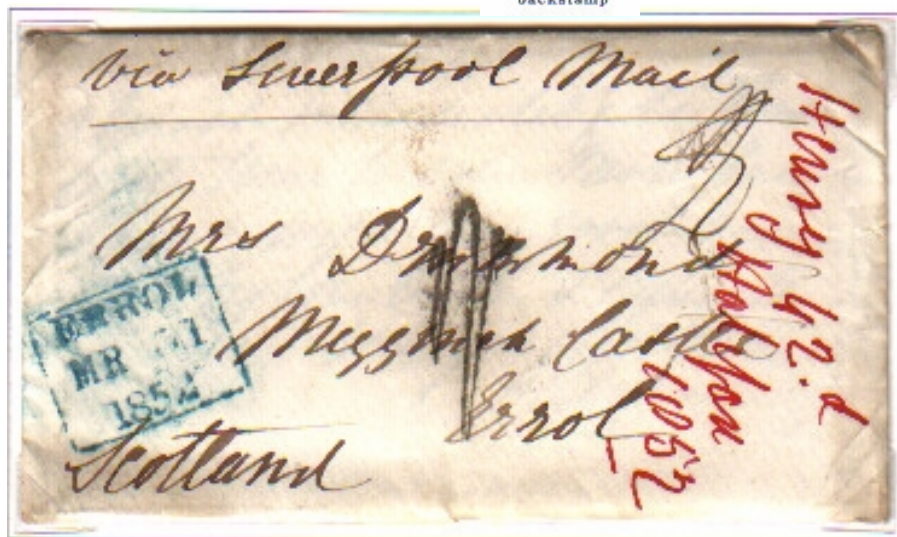 backstamp
via Liverpool Mail
Mrs Drummond
Megginch Castle
Errol
Scotland
ERROL
MR 31
1852
Henry 42.d
Halifax
1852